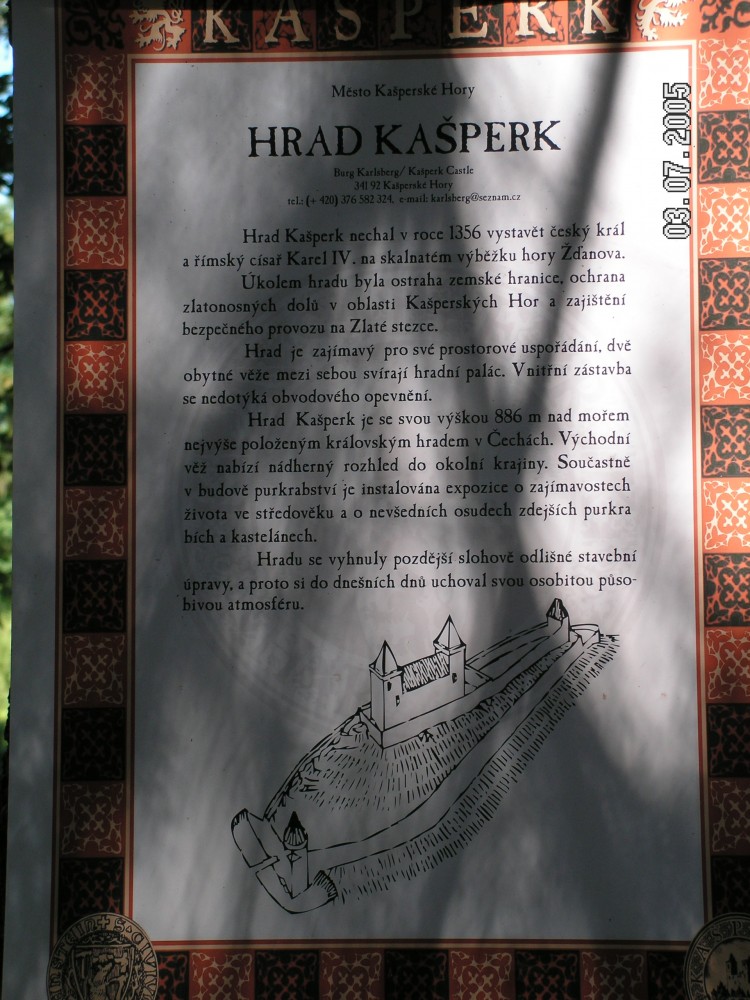 KAŠPERK
Město Kašperské Hory
HRAD KAŠPERK
Burg Karlsberg/ Kašperk Castle
341 92 Kašperské Hory
tel.: (+ 420) 376 582 324, e-mail: karlsberg@seznam.cz
Hrad Kašperk nechal v roce 1356 vystavět český král
a římský císař Karel IV. na skalnatém výběžku hory Žďanova.
Úkolem hradu byla ostraha zemské hranice, ochrana
zlatonosných dolů v oblasti Kašperských Hor a zajištění
bezpečného provozu na Zlaté stezce.
Hrad je zajímavý pro své prostorové uspořádání, dvě
obytné věže mezi sebou svírají hradní palác. Vnitřní zástavba
se nedotýká obvodového opevnění.
Hrad Kašperk je se svou výškou 886 m nad mořem
nejvýše položeným královským hradem v Čechách. Východní
věž nabízí nádherný rozhled do okolní krajiny. Součastně
v budově purkrabství je instalována expozice o zajímavostech
života ve středověku a o nevšedních osudech zdejších purkra
bích a kastelánech.
Hradu se vyhnuly pozdější slohově odlišné stavební
úpravy, a proto si do dnešních dnů uchoval svou osobitou půso-
bivou atmosféru.
03.07.2005